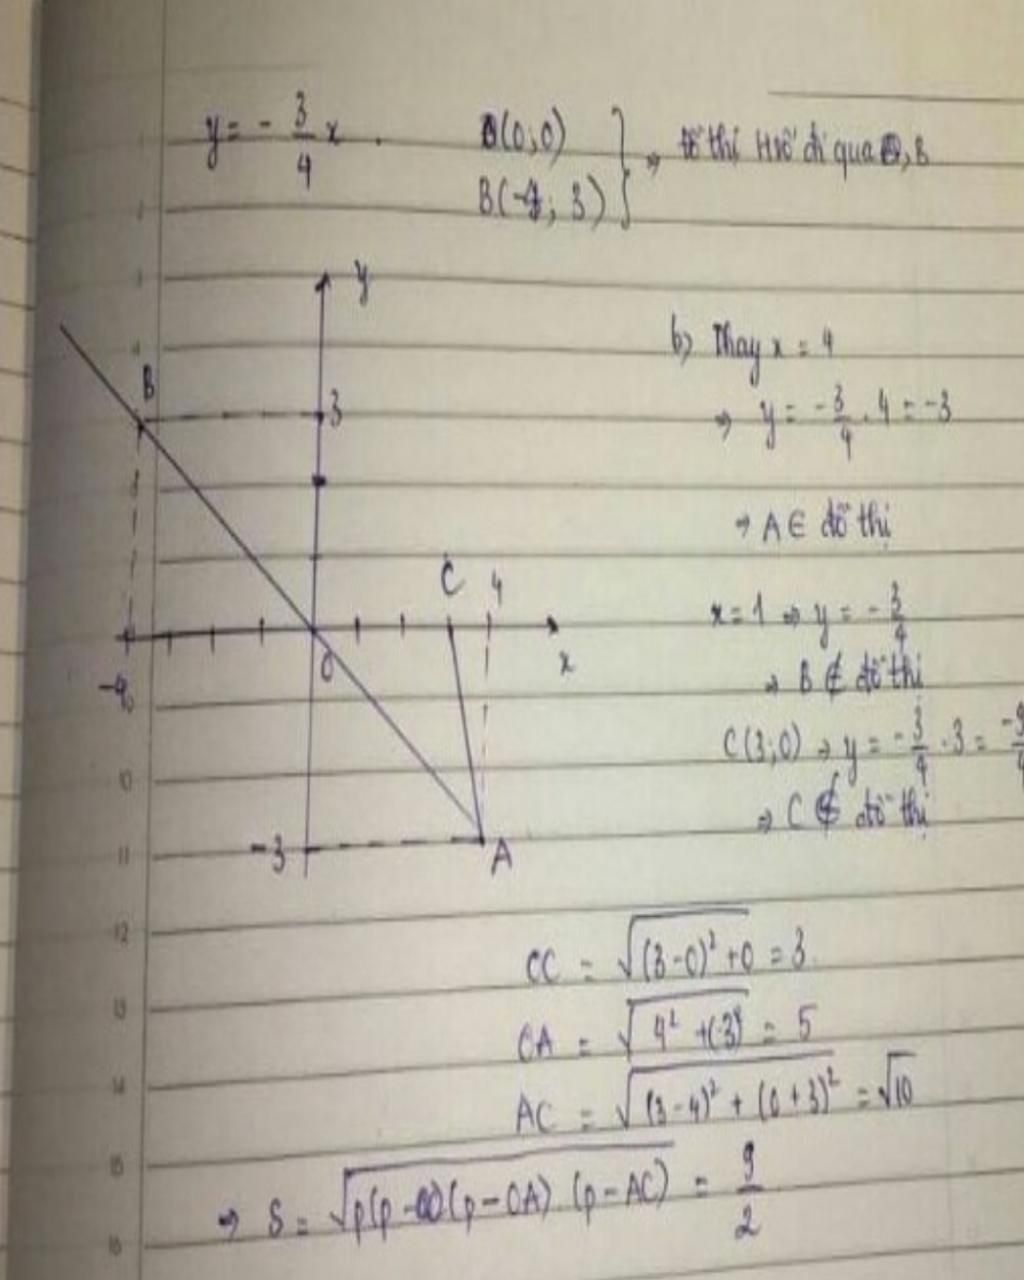 y = - 3/4 x .
O(0;0)
B(-4; 3)
} ⇒ đồ thị Hsố đi qua O, B
y
b) Thay x = 4
B
3
⇒ y = -3/4 . 4 = -3
⇒ A ∈ đồ thị
C 4
x = 1 ⇒ y = - 3/4
O
x
-4
⇒ B ∉ đồ thị
C(3;0) ⇒ y = - 3/4 . 3 = -9/4
⇒ C ∉ đồ thị
-3
A
OC = √((3-0)² + 0) = 3
OA = √(4² + (-3)²) = 5
AC = √((3-4)² + (0+3)²) = √10
⇒ S = √(p(p-OC)(p-OA) (p-AC)) = 9/2